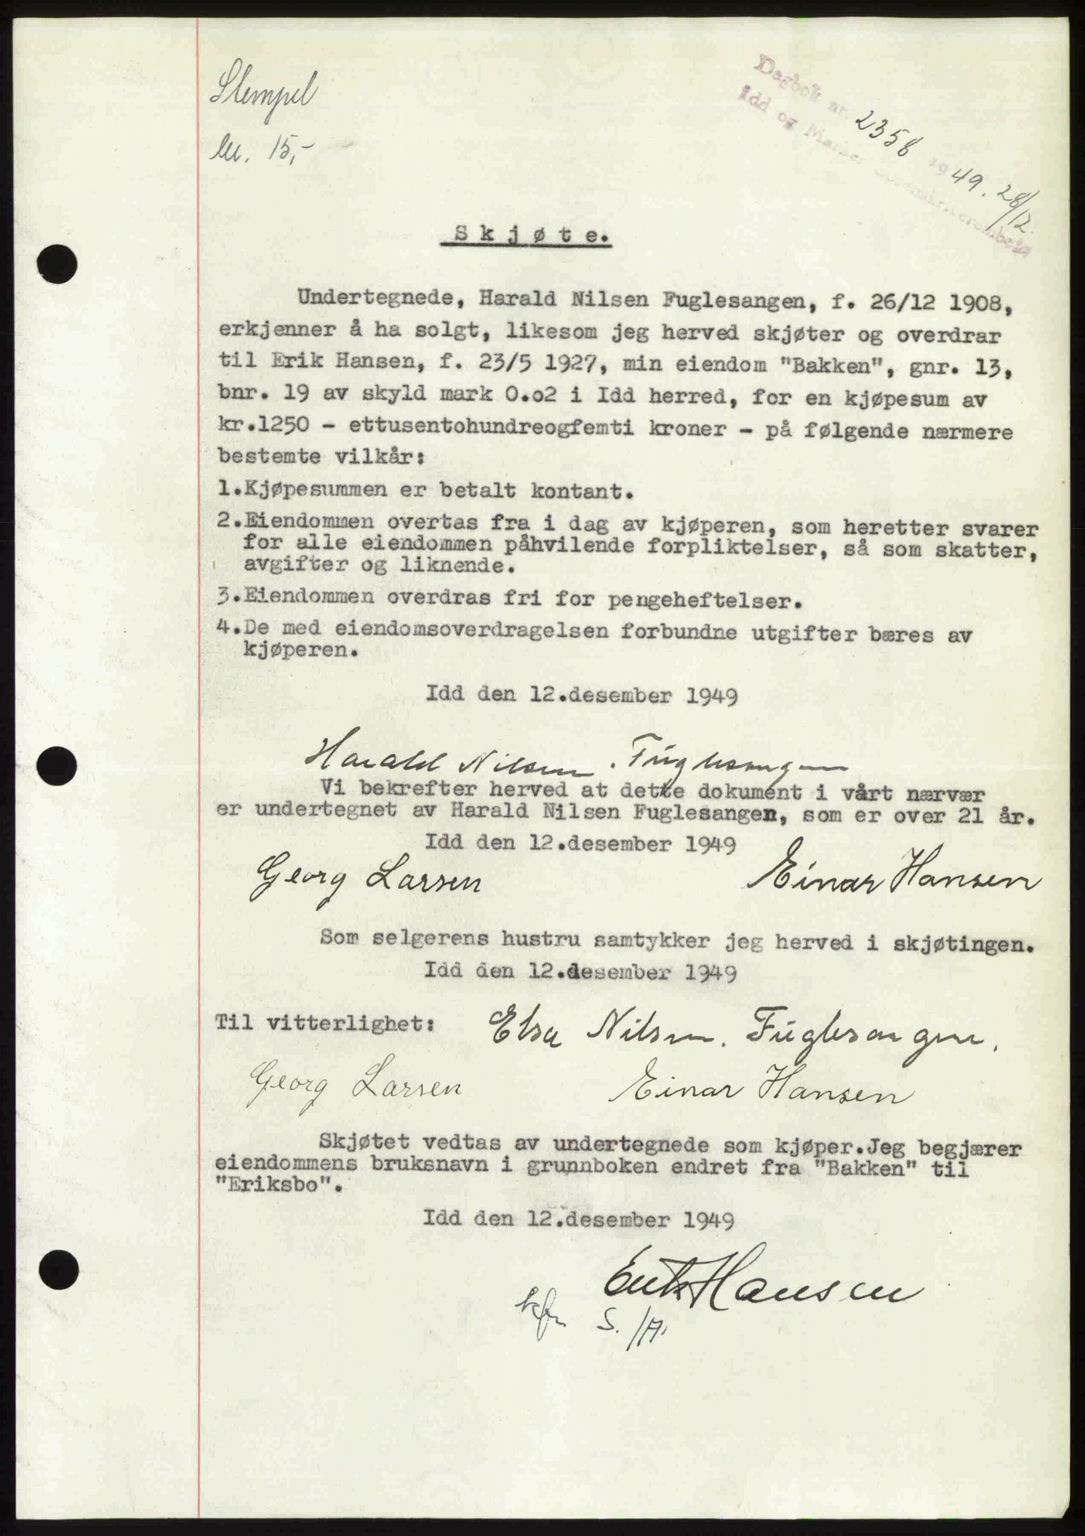 Stempel
kr. 15,-
Dagbok nr. 2358 1949. 28/12.
Idd og Marker
Skjøte.
Undertegnede, Harald Nilsen Fuglesangen, f. 26/12 1908,
erkjenner å ha solgt, likesom jeg herved skjøter og overdrar
til Erik Hansen, f. 23/5 1927, min eiendom "Bakken", gnr. 13,
bnr. 19 av skyld mark 0.o2 i Idd herred, for en kjøpesum av
kr.1250 - ettusentohundreogfemti kroner - på følgende nærmere
bestemte vilkår:
1.Kjøpesummen er betalt kontant.
2.Eiendommen overtas fra i dag av kjøperen, som heretter svarer
for alle eiendommen påhvilende forpliktelser, så som skatter,
avgifter og liknende.
3.Eiendommen overdras fri for pengeheftelser.
4.De med eiendomsoverdragelsen forbundne utgifter bæres av
kjøperen.
Idd den 12.desember 1949
Harald Nilsen. Fuglesangen
Vi bekrefter herved at dette dokument i vårt nærvær
er undertegnet av Harald Nilsen Fuglesangen, som er over 21 år.
Idd den 12.desember 1949
Georg Larsen Einar Hansen
Som selgerens hustru samtykker jeg herved i skjøtingen.
Idd den 12.desember 1949
Til vitterlighet: Elsa Nilsen. Fuglesangen.
Georg Larsen Einar Hansen
Skjøtet vedtas av undertegnede som kjøper.Jeg begjærer
eiendommens bruksnavn i grunnboken endret fra "Bakken" til
"Eriksbo".
Idd den 12.desember 1949
Erik Hansen
S. /A.